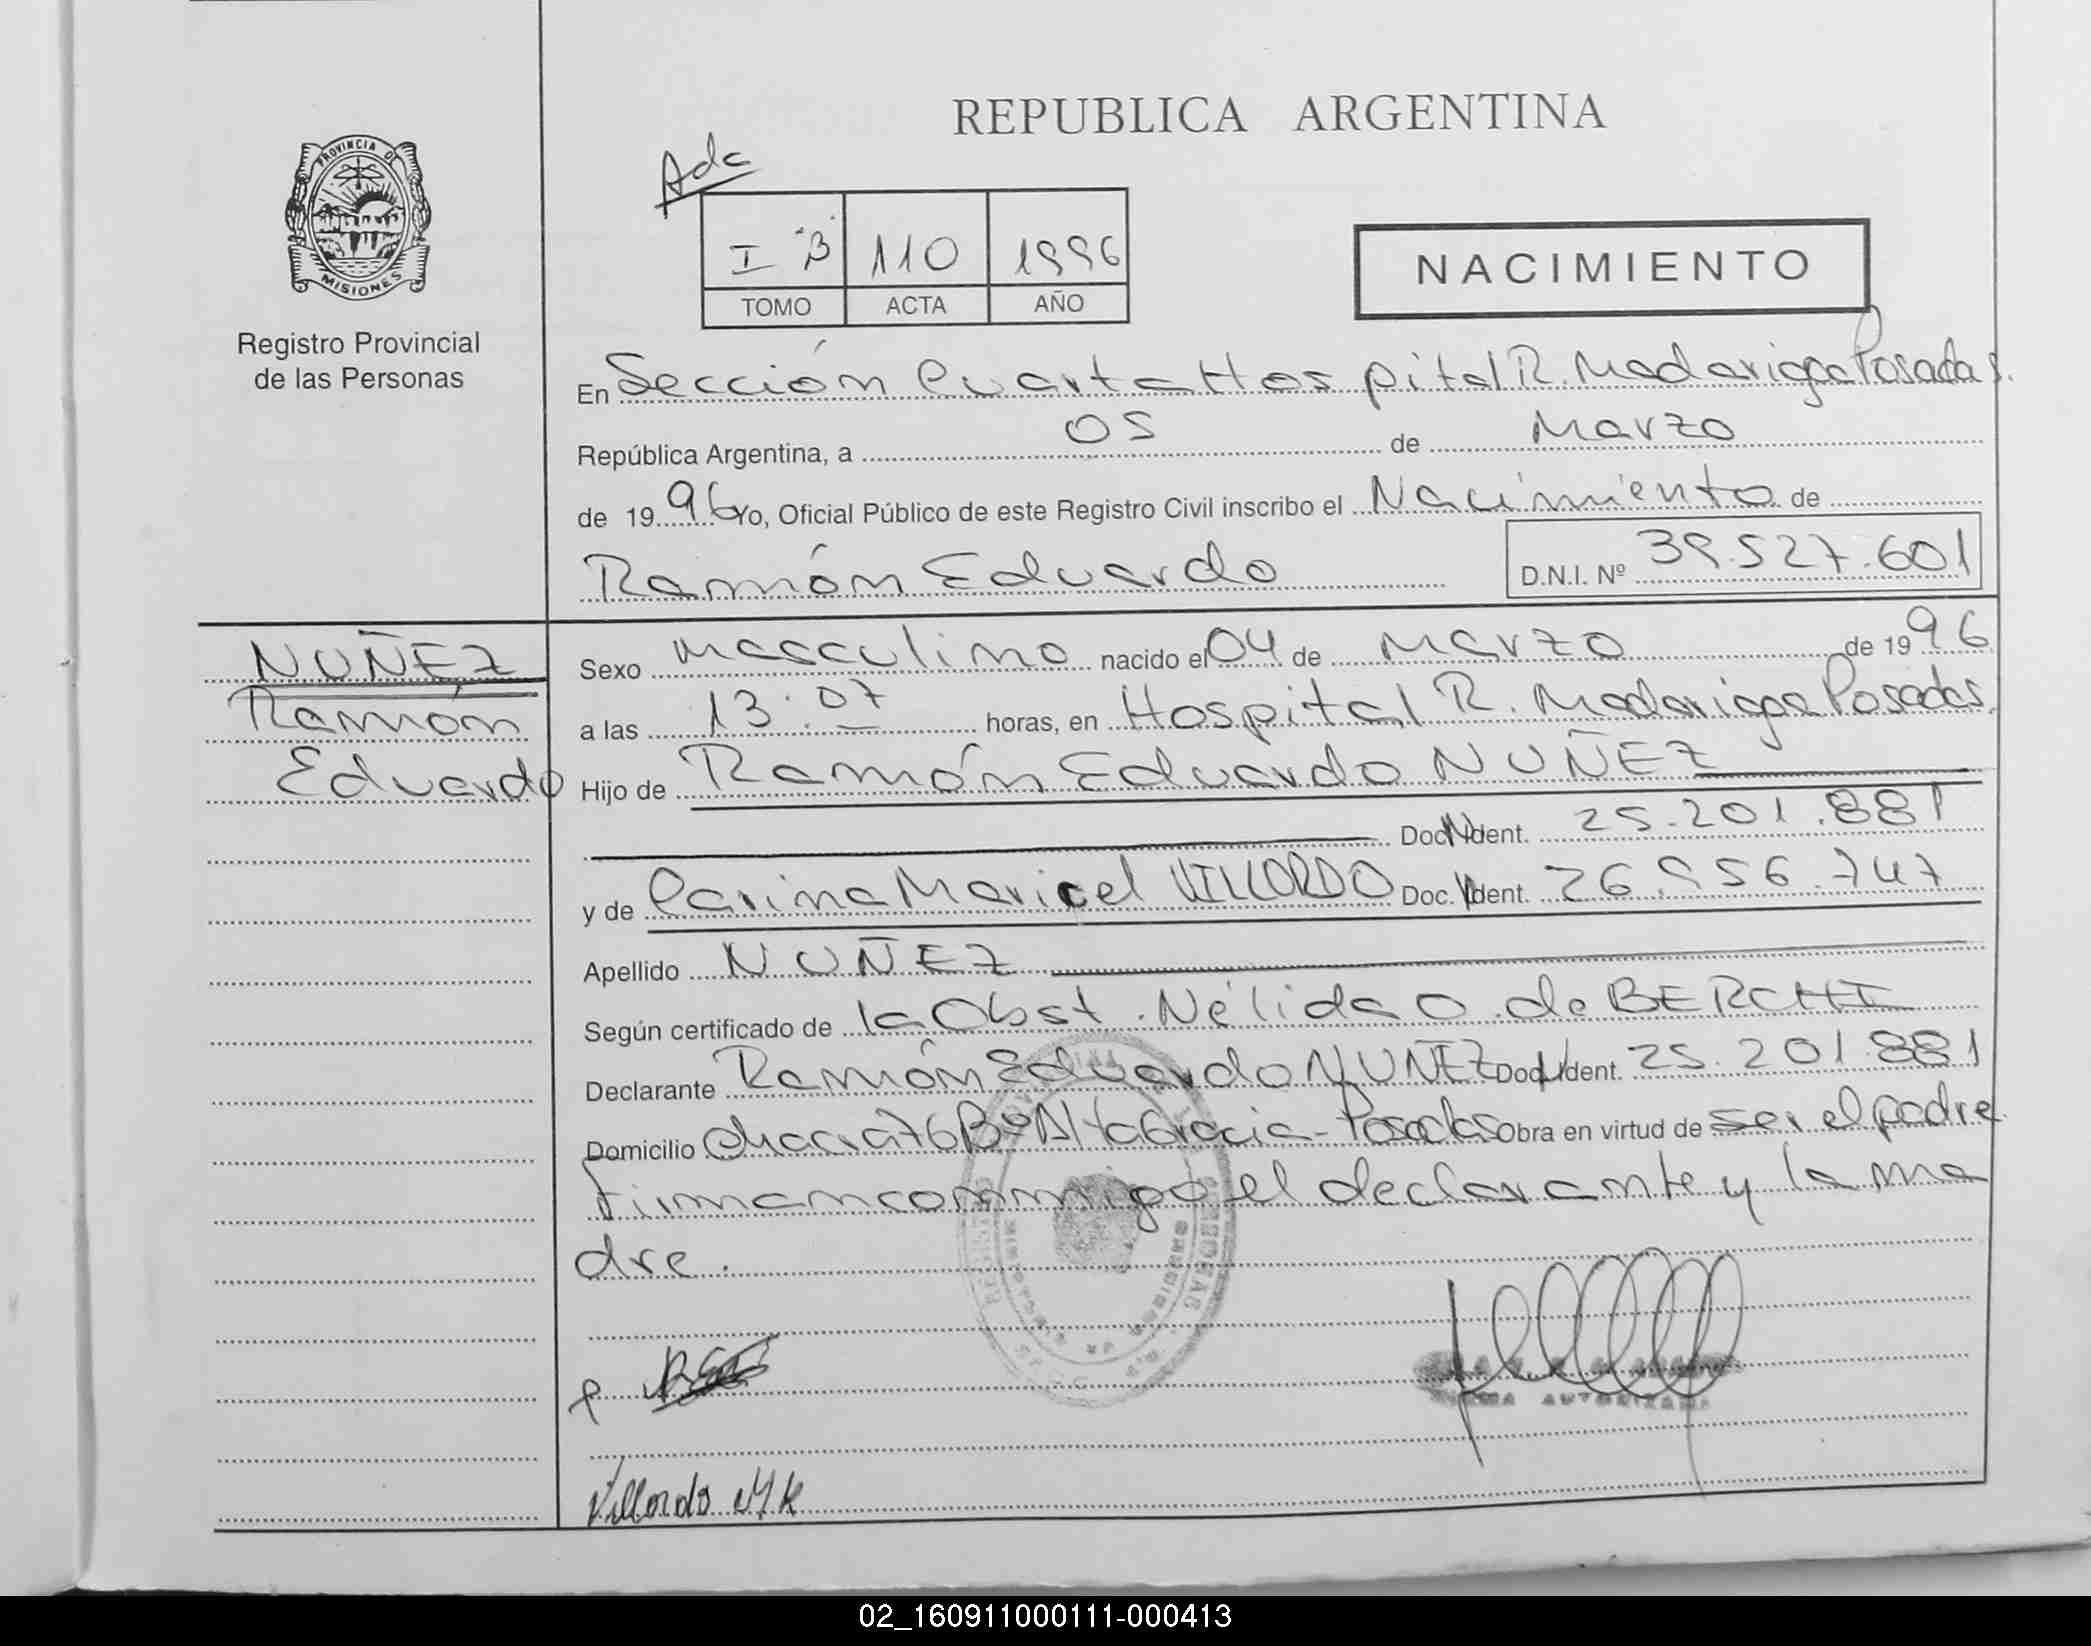 REPUBLICA ARGENTINA
PROVINCIA DE
MISIONES
Registro Provincial
de las Personas
Adc
I B 110 1996
TOMO ACTA AÑO
NACIMIENTO
En Sección Cuarta Hospital R. Madariaga Posadas.
República Argentina, a 05 de Marzo
de 1996 yo, Oficial Público de este Registro Civil inscribo el Nacimiento de
Ramón Eduardo D.N.I. Nº 39.527.601
NUÑEZ
Ramón
Eduardo
Sexo masculino nacido el 04 de Marzo de 1996
a las 13:07 horas, en Hospital R. Madariaga Posadas.
Hijo de Ramón Eduardo NUÑEZ
Doc. Ident. 25.201.881
y de Carina Maricel VILLORDO Doc. Ident. 26.956.747
Apellido NUÑEZ
Según certificado de la Obst. Nélida O. de BERCHI
Declarante Ramón Eduardo NUÑEZ Doc. Ident. 25.201.881
Domicilio Chacra 76 Bº Alta Gracia - Posadas Obra en virtud de ser el padre
Firman conmigo el declarante y la ma
dre.
Villordo M K
02_160911000111-000413